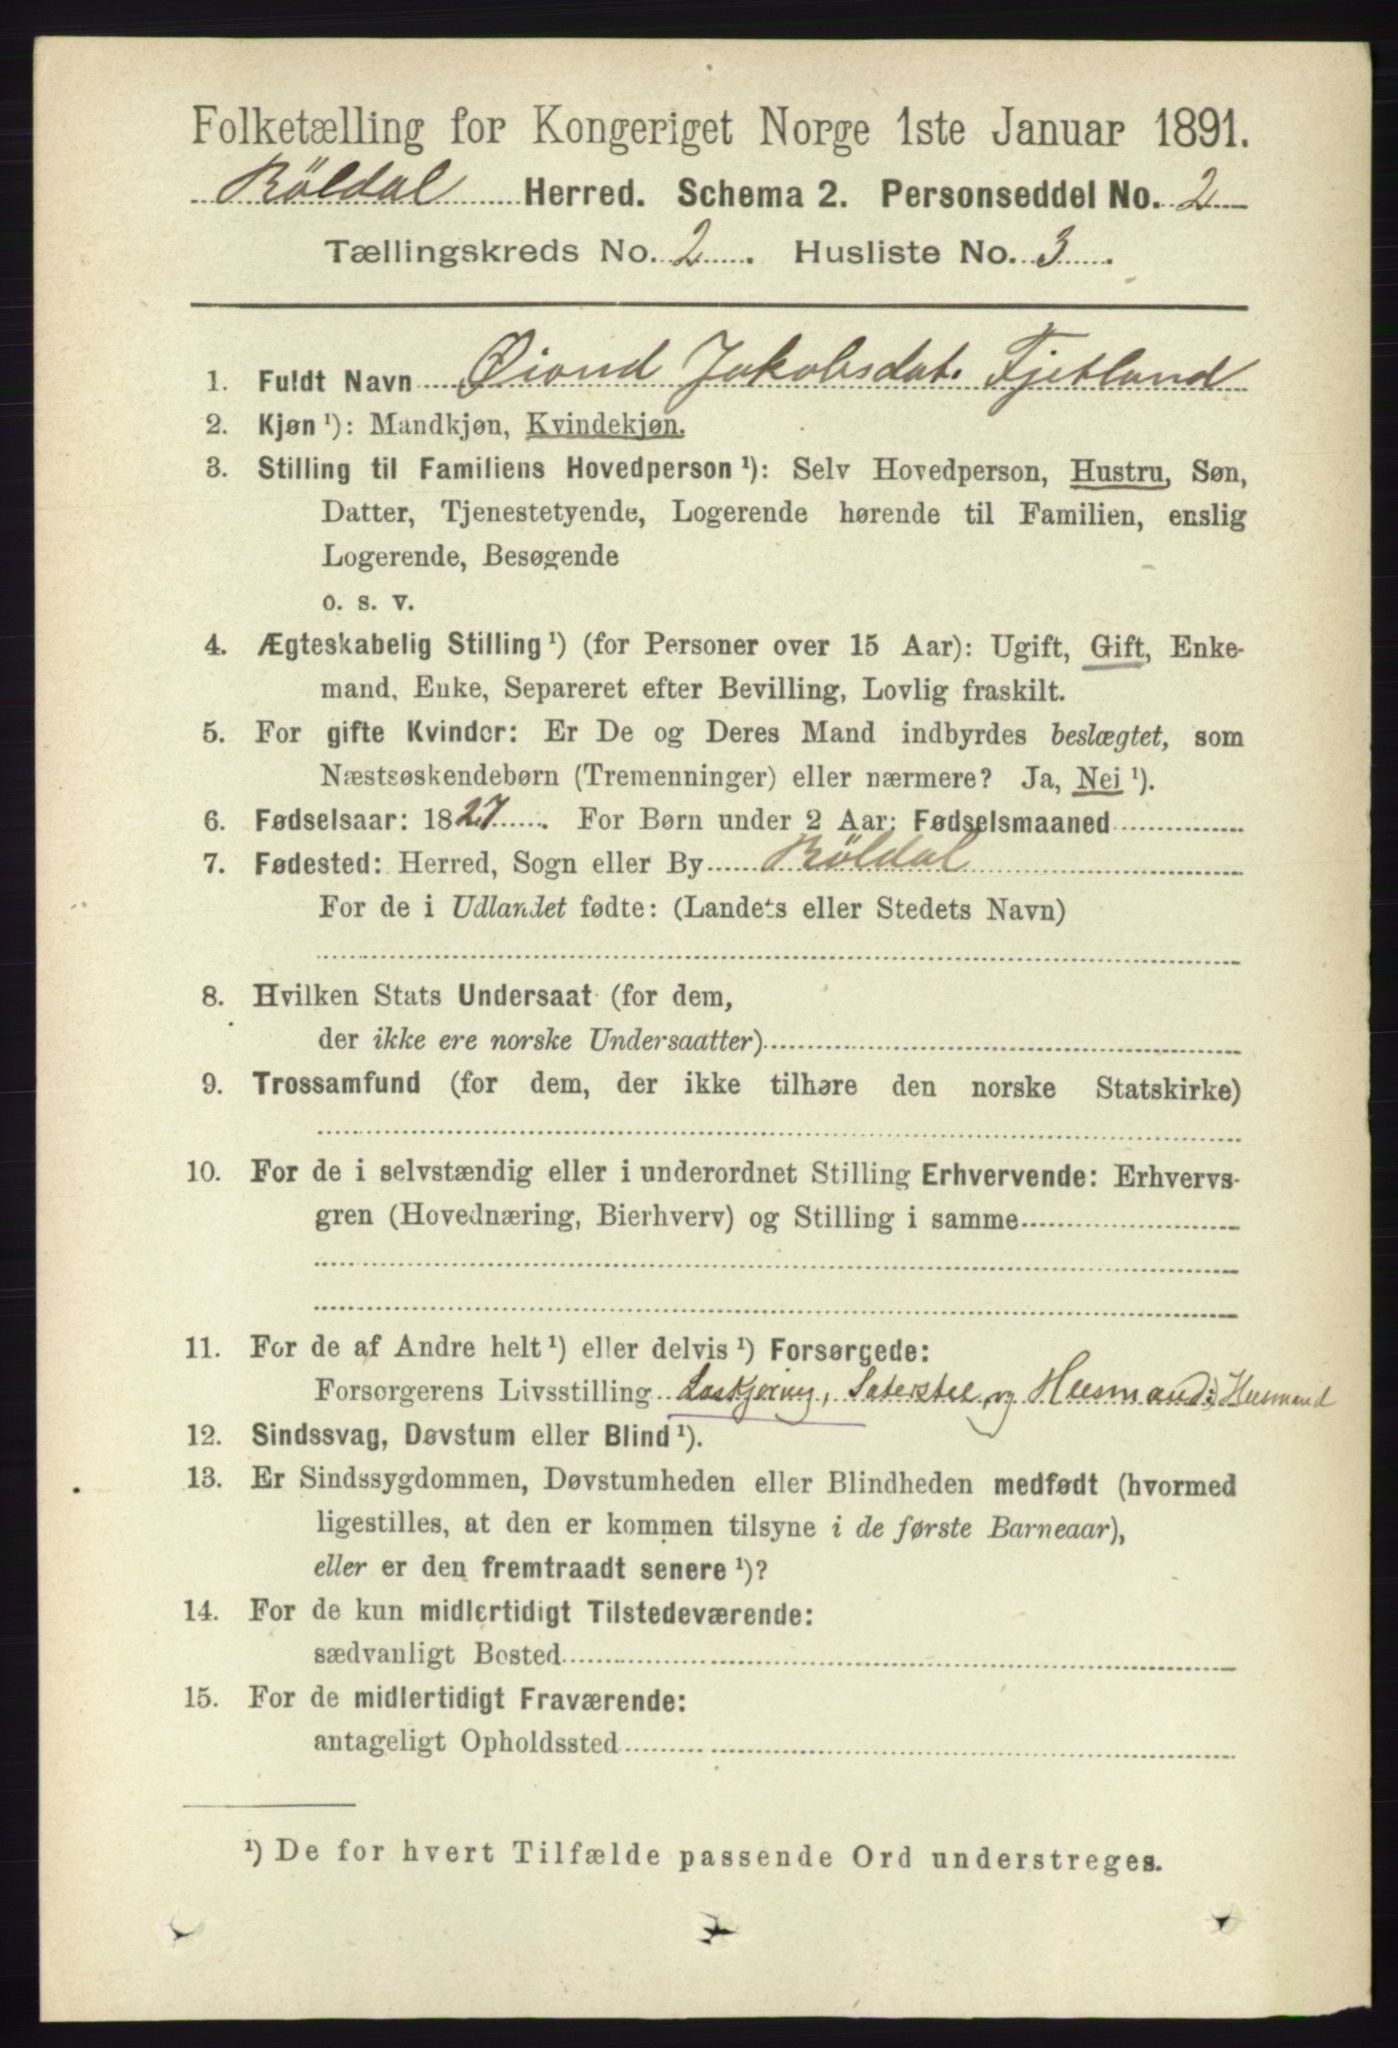 Folketælling for Kongeriget Norge 1ste Januar 1891.
Röldal Herred. Schema 2. Personseddel No. 2
Tællingskreds No. 2. Husliste No. 3.
1. Fuldt Navn Øiond Jakobsdat. Fjetland
2. Kjøn ¹): Mandkjøn, Kvindekjøn.
3. Stilling til Familiens Hovedperson ¹): Selv Hovedperson, Hustru, Søn,
Datter, Tjenestetyende, Logerende hørende til Familien, enslig
Logerende, Besøgende
o. s. v.
4. Ægteskabelig Stilling ¹) (for Personer over 15 Aar): Ugift, Gift, Enke-
mand, Enke, Separeret efter Bevilling, Lovlig fraskilt.
5. For gifte Kvinder: Er De og Deres Mand indbyrdes beslægtet, som
Næstsøskendebørn (Tremenninger) eller nærmere? Ja, Nei ¹).
6. Fødselsaar: 1827. For Børn under 2 Aar: Fødselsmaaned
7. Fødested: Herred, Sogn eller By Röldal
For de i Udlandet fødte: (Landets eller Stedets Navn)
8. Hvilken Stats Undersaat (for dem,
der ikke ere norske Undersaatter)
9. Trossamfund (for dem, der ikke tilhøre den norske Statskirke)
10. For de i selvstændig eller i underordnet Stilling Erhvervende: Erhvervs-
gren (Hovednæring, Bierhverv) og Stilling i samme
11. For de af Andre helt ¹) eller delvis ¹) Forsørgede:
Forsørgerens Livsstilling og Huusmand Husmand
12. Sindssvag, Døvstum eller Blind ¹).
13. Er Sindssygdommen, Døvstumheden eller Blindheden medfødt (hvormed
ligestilles, at den er kommen tilsyne i de første Barneaar),
eller er den fremtraadt senere ¹)?
14. For de kun midlertidigt Tilstedeværende:
sædvanligt Bosted
15. For de midlertidigt Fraværende:
antageligt Opholdssted
¹) De for hvert Tilfælde passende Ord understreges.